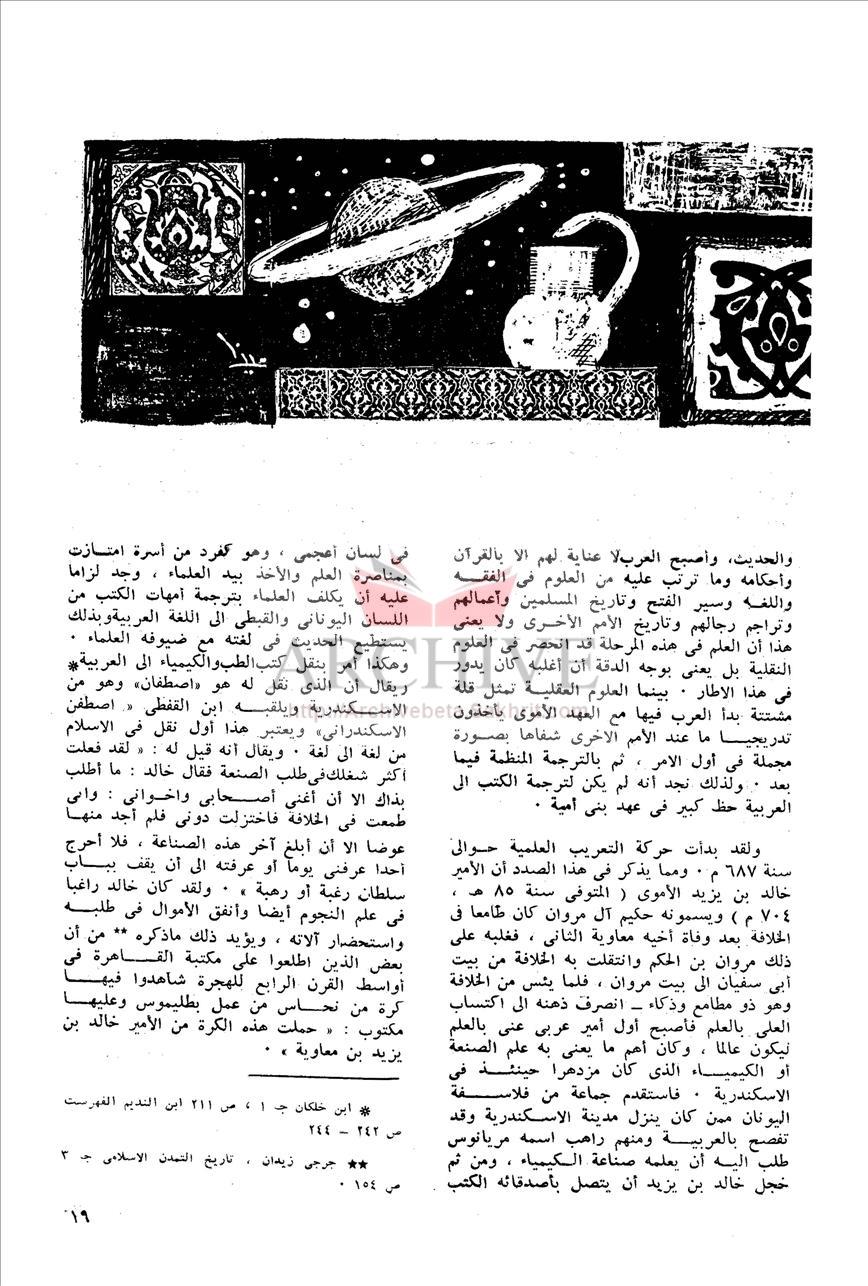 والحديث، وأصبح العرب لا عناية لهم الا بالقرآن
وأحكامه وما ترتب عليه من العلوم فى الفقـــه
واللغـه وسير الفتح وتاريخ المسلمين وأعمالهم
وتراجم رجالهم وتاريخ الأمم الأخـرى ولا يعنى
هذا أن العلم فى هذه المرحلة قد انحصر فى العلوم
النقلية بل يعنى بوجه الدقة أن أغلبه كان يدور
فى هذا الاطار ٠ بينما العلوم العقليـة تمثل قلة
مشتتة بدأ العرب فيها مع العهد الأموى يأخذون
تدريجيــا ما عند الأمم الاخرى شفاها بصـورة
مجملة فى أول الامر ، ثم بالترجمة المنظمة فيما
بعد ٠ ولذلك نجد أنه لم يكن لترجمة الكتب الى
العربية حظ كبير فى عهد بنى أمية ٠
ولقد بدأت حركة التعريب العلمية حـوالى
سنة ٦٨٧ م ٠ ومما يذكر فى هذا الصدد أن الأمير
خالد بن يزيد الأموى ( المتوفى سنة ٨٥ هـ ،
٧٠٤ م ) ويسمونه حكيم آل مروان كان طامعا فى
الخلافة بعد وفاة أخيه معاوية الثانى ، فغلبه على
ذلك مروان بن الحكم وانتقلت به الخلافة من بيت
أبى سفيان الى بيت مروان ، فلما يئس من الخلافة
وهو ذو مطامع وذكاء ــ انصرف ذهنه الى اكتساب
العلى بالعلم فأصبح أول أمير عربى عنى بالعلم
ليكون عالما ، وكان أهم ما يعنى به علم الصنعة
أو الكيميـــاء الذى كان مزدهرا حينئــذ فى
الاسكندرية ٠ فاستقدم جماعة من فلاســـفة
اليونان ممن كان ينزل مدينة الاسـكندرية وقد
تفصح بالعربيــة ومنهم راهب اسمه مريانوس
طلب اليـه أن يعلمه صناعة الـكيمياء ، ومن ثم
خجل خالد بن يزيد أن يتصل بأصدقائه الكتب
فى لسان أعجمى ، وهو كفرد من أسرة امتــازت
بمناصرة العلم والأخذ بيد العلماء ، وجد لزاما
عليه أن يكلف العلماء بترجمة أمهات الكتب من
اللسان اليونانى والقبطى الى اللغة العربيةوبذلك
يستطيع الحديث فى لغته مع ضيوفه العلماء ٠
وهكذا أمر بنقل كتب الطب والكيمياء الى العربية*
ريقال أن الذى نقل له هو «اصطفان» وهو من
الاســكندرية ويلقبـــه ابن القفطى « اصطفن
الاسكندرانى» ويعتبر هذا أول نقل فى الاسلام
من لغة الى لغة ٠ ويقال أنه قيل له : « لقد فعلت
أكثر شغلك فى طلب الصنعة فقال خالد : ما أطلب
بذاك الا أن أغنى أصـــحابى واخـوانى : وانى
طمعت فى الخلافة فاختزلت دونى فلم أجد منهـا
عوضا الا أن أبلغ آخر هذه الصناعة ، فلا أحرج
أحدا عرفنى يوما أو عرفته الى أن يقف ببــاب
سلطان رغبة أو رهبة » ٠ ولقد كان خالد راغبا
فى علم النجوم أيضا وأنفق الأموال فى طلبــه
واستحضار آلاته ، ويؤيد ذلك ماذكره ** من أن
بعض الذين اطلعوا على مكتبة القـــاهرة فى
أواسط القرن الرابع للهجرة شاهدوا فيهـــا
كرة من نحــاس من عمل بطليموس وعليهــا
مكتوب : « حملت هذه الكرة من الأمير خالد بن
يزيد بن معاوية » ٠
* ابن خلكان جـ ١ ، ص ٢١١ ابن النديم الفهرست
ص ٢٤٢ – ٢٤٤
** جرجى زيدان ، تاريخ التمدن الاسلامى جـ ٣
ص ١٥٤ ٠
١٩
ARCHIVE
http://Archivebeta.Sakhrit.com